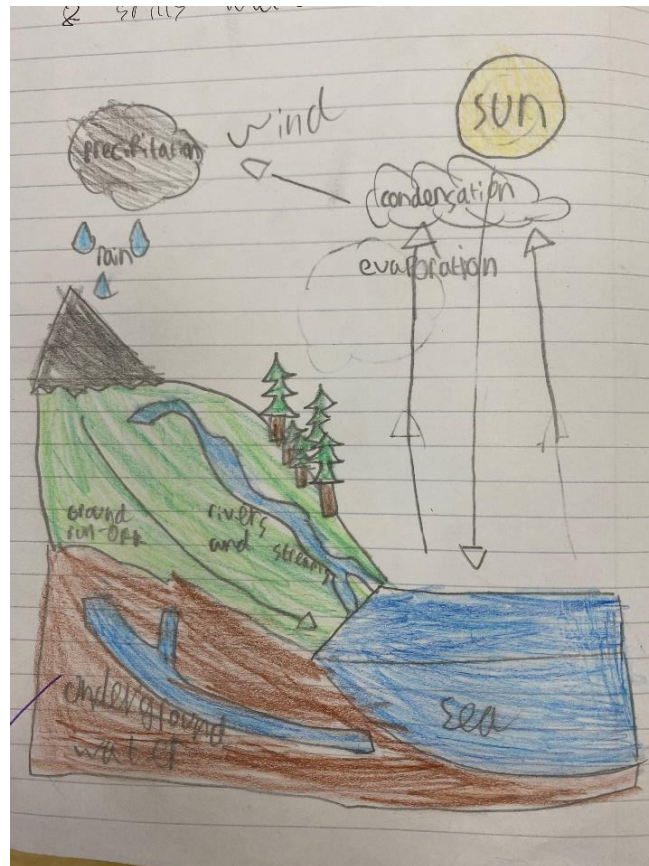 &
wind
sun
precipitation
condensation
rain
evaporation
Ground
run-off
rivers
and streams
underground
water
sea